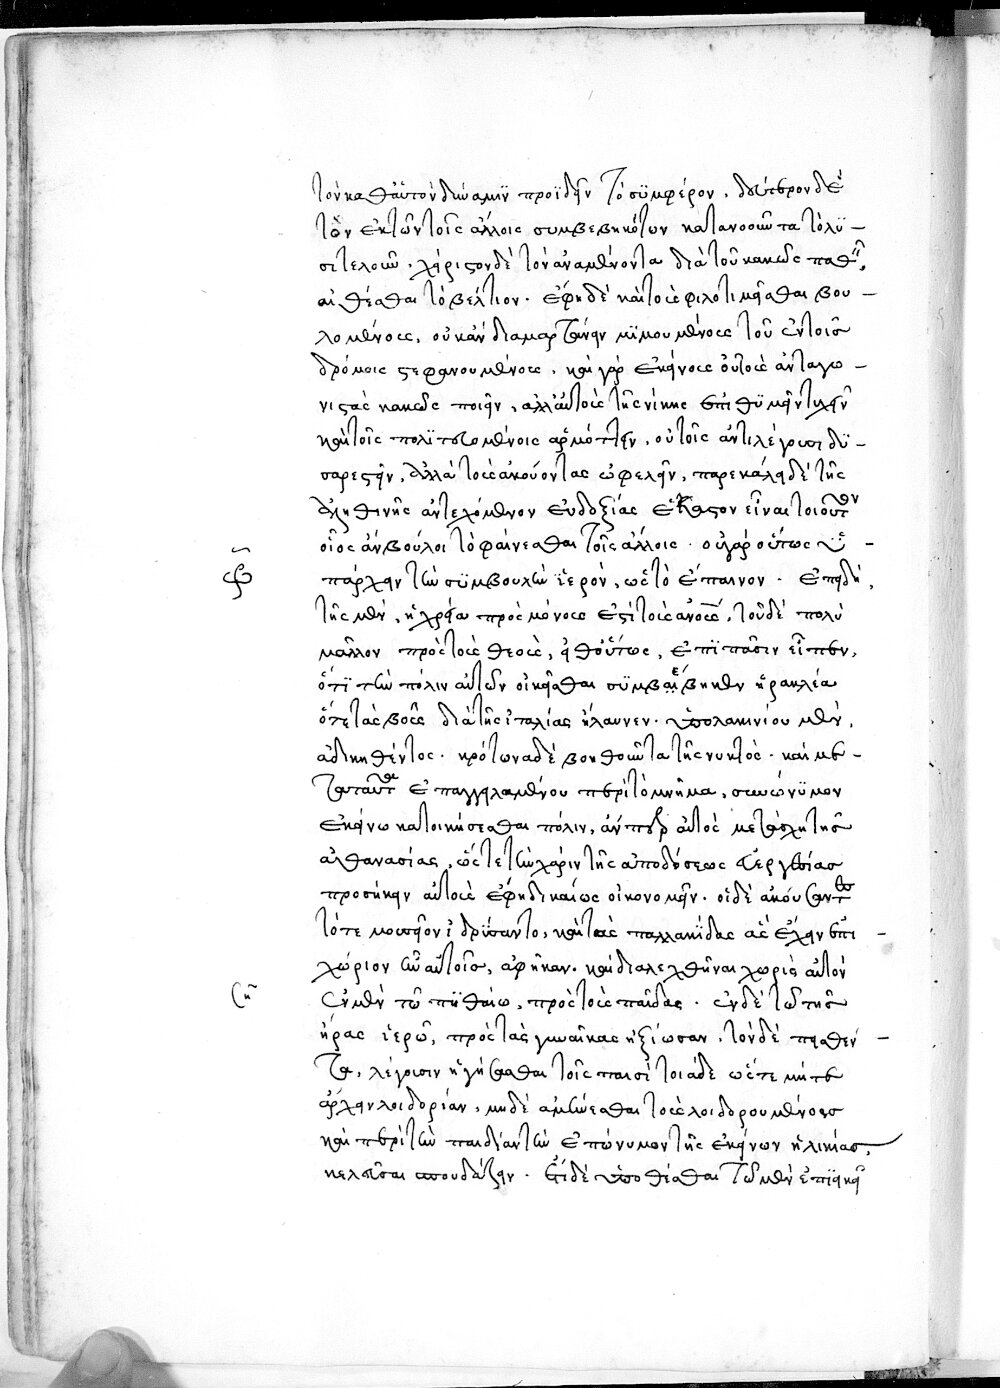 τὸν καθ' αὑτὸν δυνάμιν προϊδεῖν τὸ συμφέρον. δεύτερον δὲ
τὸν ἐκ τῶν τοῖς ἄλλοις συμβεβηκότων κατανοοῦντα τὸ λυ-
σιτελοῦν. χείριστον δὲ τὸν ἀναμένοντα διὰ τοῦ κακῶς παθεῖν,
αἰσθέσθαι τὸ βέλτιον. ἔφη δὲ καὶ τοὺς φιλοτιμεῖσθαι βου-
λομένους, οὐκ ἂν διαμαρτάνειν μιμουμένους τοὺς ἐν τοῖς
δρόμοις στεφανουμένους. καὶ γὰρ ἐκείνους οὐ τοὺς ἀνταγω-
νιστὰς κακῶς ποιεῖν, ἀλλ' αὐτοὺς τῆς νίκης ἐπιθυμεῖν τυχεῖν
καὶ τοῖς πολιτευομένοις ἁρμόττειν, οὐ τοῖς ἀντιλέγουσι δυ-
σαρεστεῖν, ἀλλὰ τοὺς ἀκούοντας ὠφελεῖν, παρεκάλει δὲ τῆς
ἀληθινῆς ἀντεχόμενον εὐδοξίας ἕκαστον εἶναι τοιοῦτον
οἷος ἂν βούλοιτο φαίνεσθαι τοῖς ἄλλοις. οὐ γὰρ οὕτως ὑ-
πάρχειν τὴν συμβουλὴν ἱερὸν, ὡς τὸ ἔπαινον. ἐπειδὴ,
τῆς μὲν, ἡ χρεία πρὸς μόνους ἐστὶ τοὺς ἀνους, τοῦ δὲ πολὺ
μᾶλλον πρὸς τοὺς θεοὺς, εἶθ' οὕτως, ἐπὶ πᾶσιν εἶπεν,
ὅτι τὴν πόλιν αὐτῶν οἰκεῖσθαι συμβαιέβηκεν ἡρακλέα
ὅτε τὰς βοῦς διὰ τῆς ἰταλίας ἤλαυνεν. ὑπολακινίου μὲν,
ἀδικηθέντος. κρότωνα δὲ βοηθοῦντα τῆς νυκτὸς. καὶ με-
τὰ ταῦτα ἐπαγγειλαμένου περὶ τὸ μνῆμα, συνώνυμον
ἐκείνω κατοικήσεσθαι πόλιν, ἄν περ αὐτὸς μετάσχῃ τῆς
ἀθανασίας, ὥστε τὴν χάριν τῆς ἀποδόσεως εὐεργεσίας
προσήκειν αὐτοὺς ἔφη δικαίως οἰκονομεῖν. οἱ δὲ ἀκούσαντες
τό τε μουσεῖον ἱδρύσαντο, καὶ τὰς παλλακίδας ἃς ἔχειν ἐπι-
χώριον ἦν αὐτοῖς, ἀφῆκαν. καὶ διαλεχθῆναι χωρὶς αὐτὸν
ἐν μὲν τῶ πυθαίω, πρὸς τοὺς παῖδας. ἐν δὲ τῶ τῆς
ἥρας ἱερῶ, πρὸς τὰς γυναῖκας ἠξίωσαν. τὸν δὲ πεισθέν-
τα, λέγουσιν ἡγήσασθαι τοῖς παισὶ τοιάδε ὥστε μήτε
ἄρχειν λοιδορίαν, μηδὲ ἀμύνεσθαι τοὺς λοιδορουμένους
καὶ περὶ τὴν παιδείαν τὴν ἐπώνυμον τῆς ἐκείνων ἡλικίας,
κελεῦσαι σπουδάζειν. ἔτι δὲ ὑποθέσθαι τῶ μὲν ἐπιεικεῖ